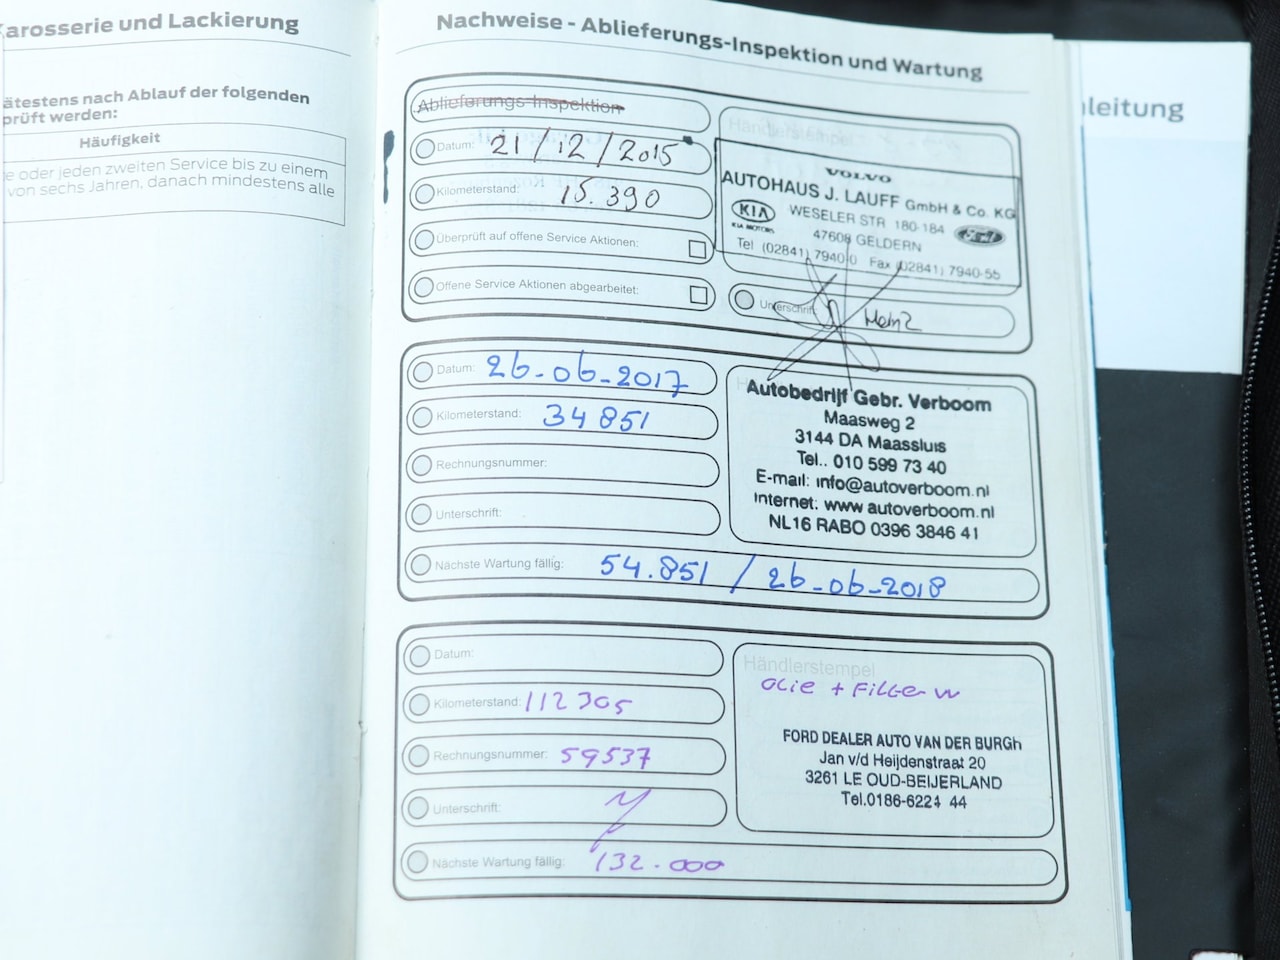 arosserie und Lackierung
ätestens nach Ablauf der folgenden
prüft werden:
Häufigkeit
e oder jeden zweiten Service bis zu einem
von sechs Jahren, danach mindestens alle
Nachweise - Ablieferungs-Inspektion und Wartung
Ablieferungs-Inspektion
Datum: 21/12/2015
Kilometerstand: 15.390
Überprüft auf offene Service Aktionen:
Offene Service Aktionen abgearbeitet:
Händlerstempel
VOLVO
AUTOHAUS J. LAUFF GmbH & Co. KG
KIA WESELER STR 180-184 Ford
KIA MOTORS 47608 GELDERN
Tel (02841) 7940-0 Fax (02841) 7940-55
Unterschrift:
Datum: 26-06-2017
Kilometerstand: 34851
Rechnungsnummer:
Unterschrift:
Nächste Wartung fällig: 54.851 / 26-06-2018
Autobedrijf Gebr. Verboom
Maasweg 2
3144 DA Maassluis
Tel.. 010 599 73 40
E-mail: info@autoverboom.nl
Internet: www.autoverboom.nl
NL16 RABO 0396 3846 41
Datum:
Kilometerstand: 112305
Rechnungsnummer: 59537
Unterschrift:
Nächste Wartung fällig: 132.000
Händlerstempel
olie + Filter
FORD DEALER AUTO VAN DER BURGh
Jan v/d Heijdenstraat 20
3261 LE OUD-BEIJERLAND
Tel.0186-6221 44
leitung